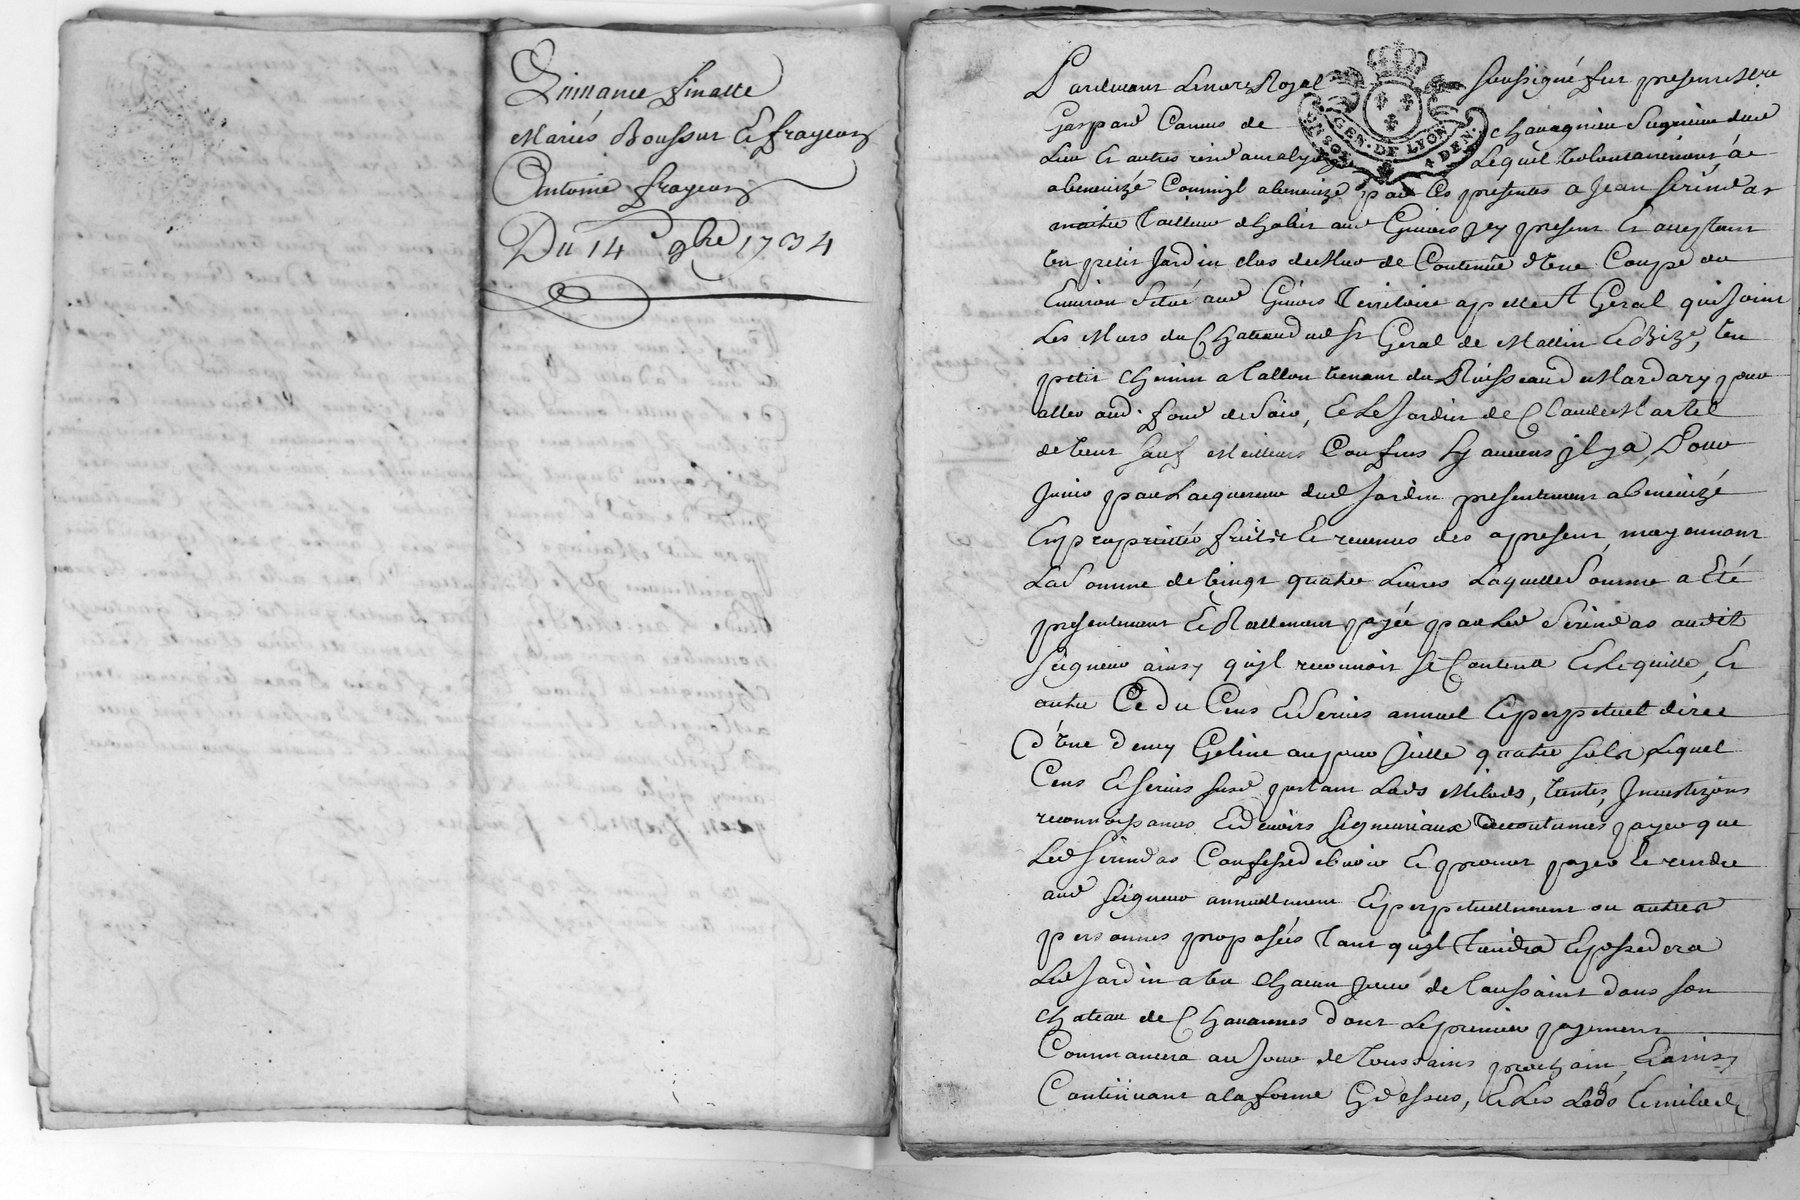 Quittance finalle
Mariés Boussur & frayeon
Antoine frayeon
Du 14e 9bre 1734
Pardevant Le nore Royal soussigné fut present Mre
GEN. DE LYON
Gaspard Camus de Chavagnieu Seigneur dud
Lieu Et autres Lequel volontairement a
abenevizé Comme il abenevize par Ces presentes a Jean Serindas
maitre Tailleur d'habits aud Givors icy present Et acceptant
Un petit Jardin clos de Mur de Contenue d'Une Coupe ou
Environ Situé aud Givors Territoire apellé St Geral qui Joint
Les Murs du Chateau dud St Geral de Matin & Bize, Un
petit chemin a Tallon tenant du Ruisseau de Mardary pour
aller aud. de Soir, & Le Jardin de Claude Martel
de Vent sauf Meilleurs Confins Sy aucuns il y a, Pour
Jouir par Lacquereur dud Jardin presentement abenevizé
En proprieté fruits & revenus des apresent, moyennant
La Somme de Vingt quatre Livres Laquelle Somme a Eté
presentement & Reellement payée par Led Serindas audit
Seigneur ainsy qu'il reconnoit se Contente & Le quitte, Et
outre Ce du Cens & Servis annuel & perpetuel direct
d'Une demy Geline aupour Jceille quatre sols Lequel
Cens & servis sera portant Lods Milods, Ventes, Jnvestizons
reconnoissances & devoirs seigneuriaux accoutumés payer que
Led Serindas Confesse debvoir & promet payer & rendre
aud seigneur annuellement & perpetuellement ou autres
personnes preposées Tant qu'il Tiendra & possedera
Led Jardin a Un Chacun Jour de Toussaint dans son
chateau de Chavannes dont Le premier payement
Commancera au Jour de Toussaint prochain, & ainsy
Continuant a la forme Cy dessus, & Les Lods & milods